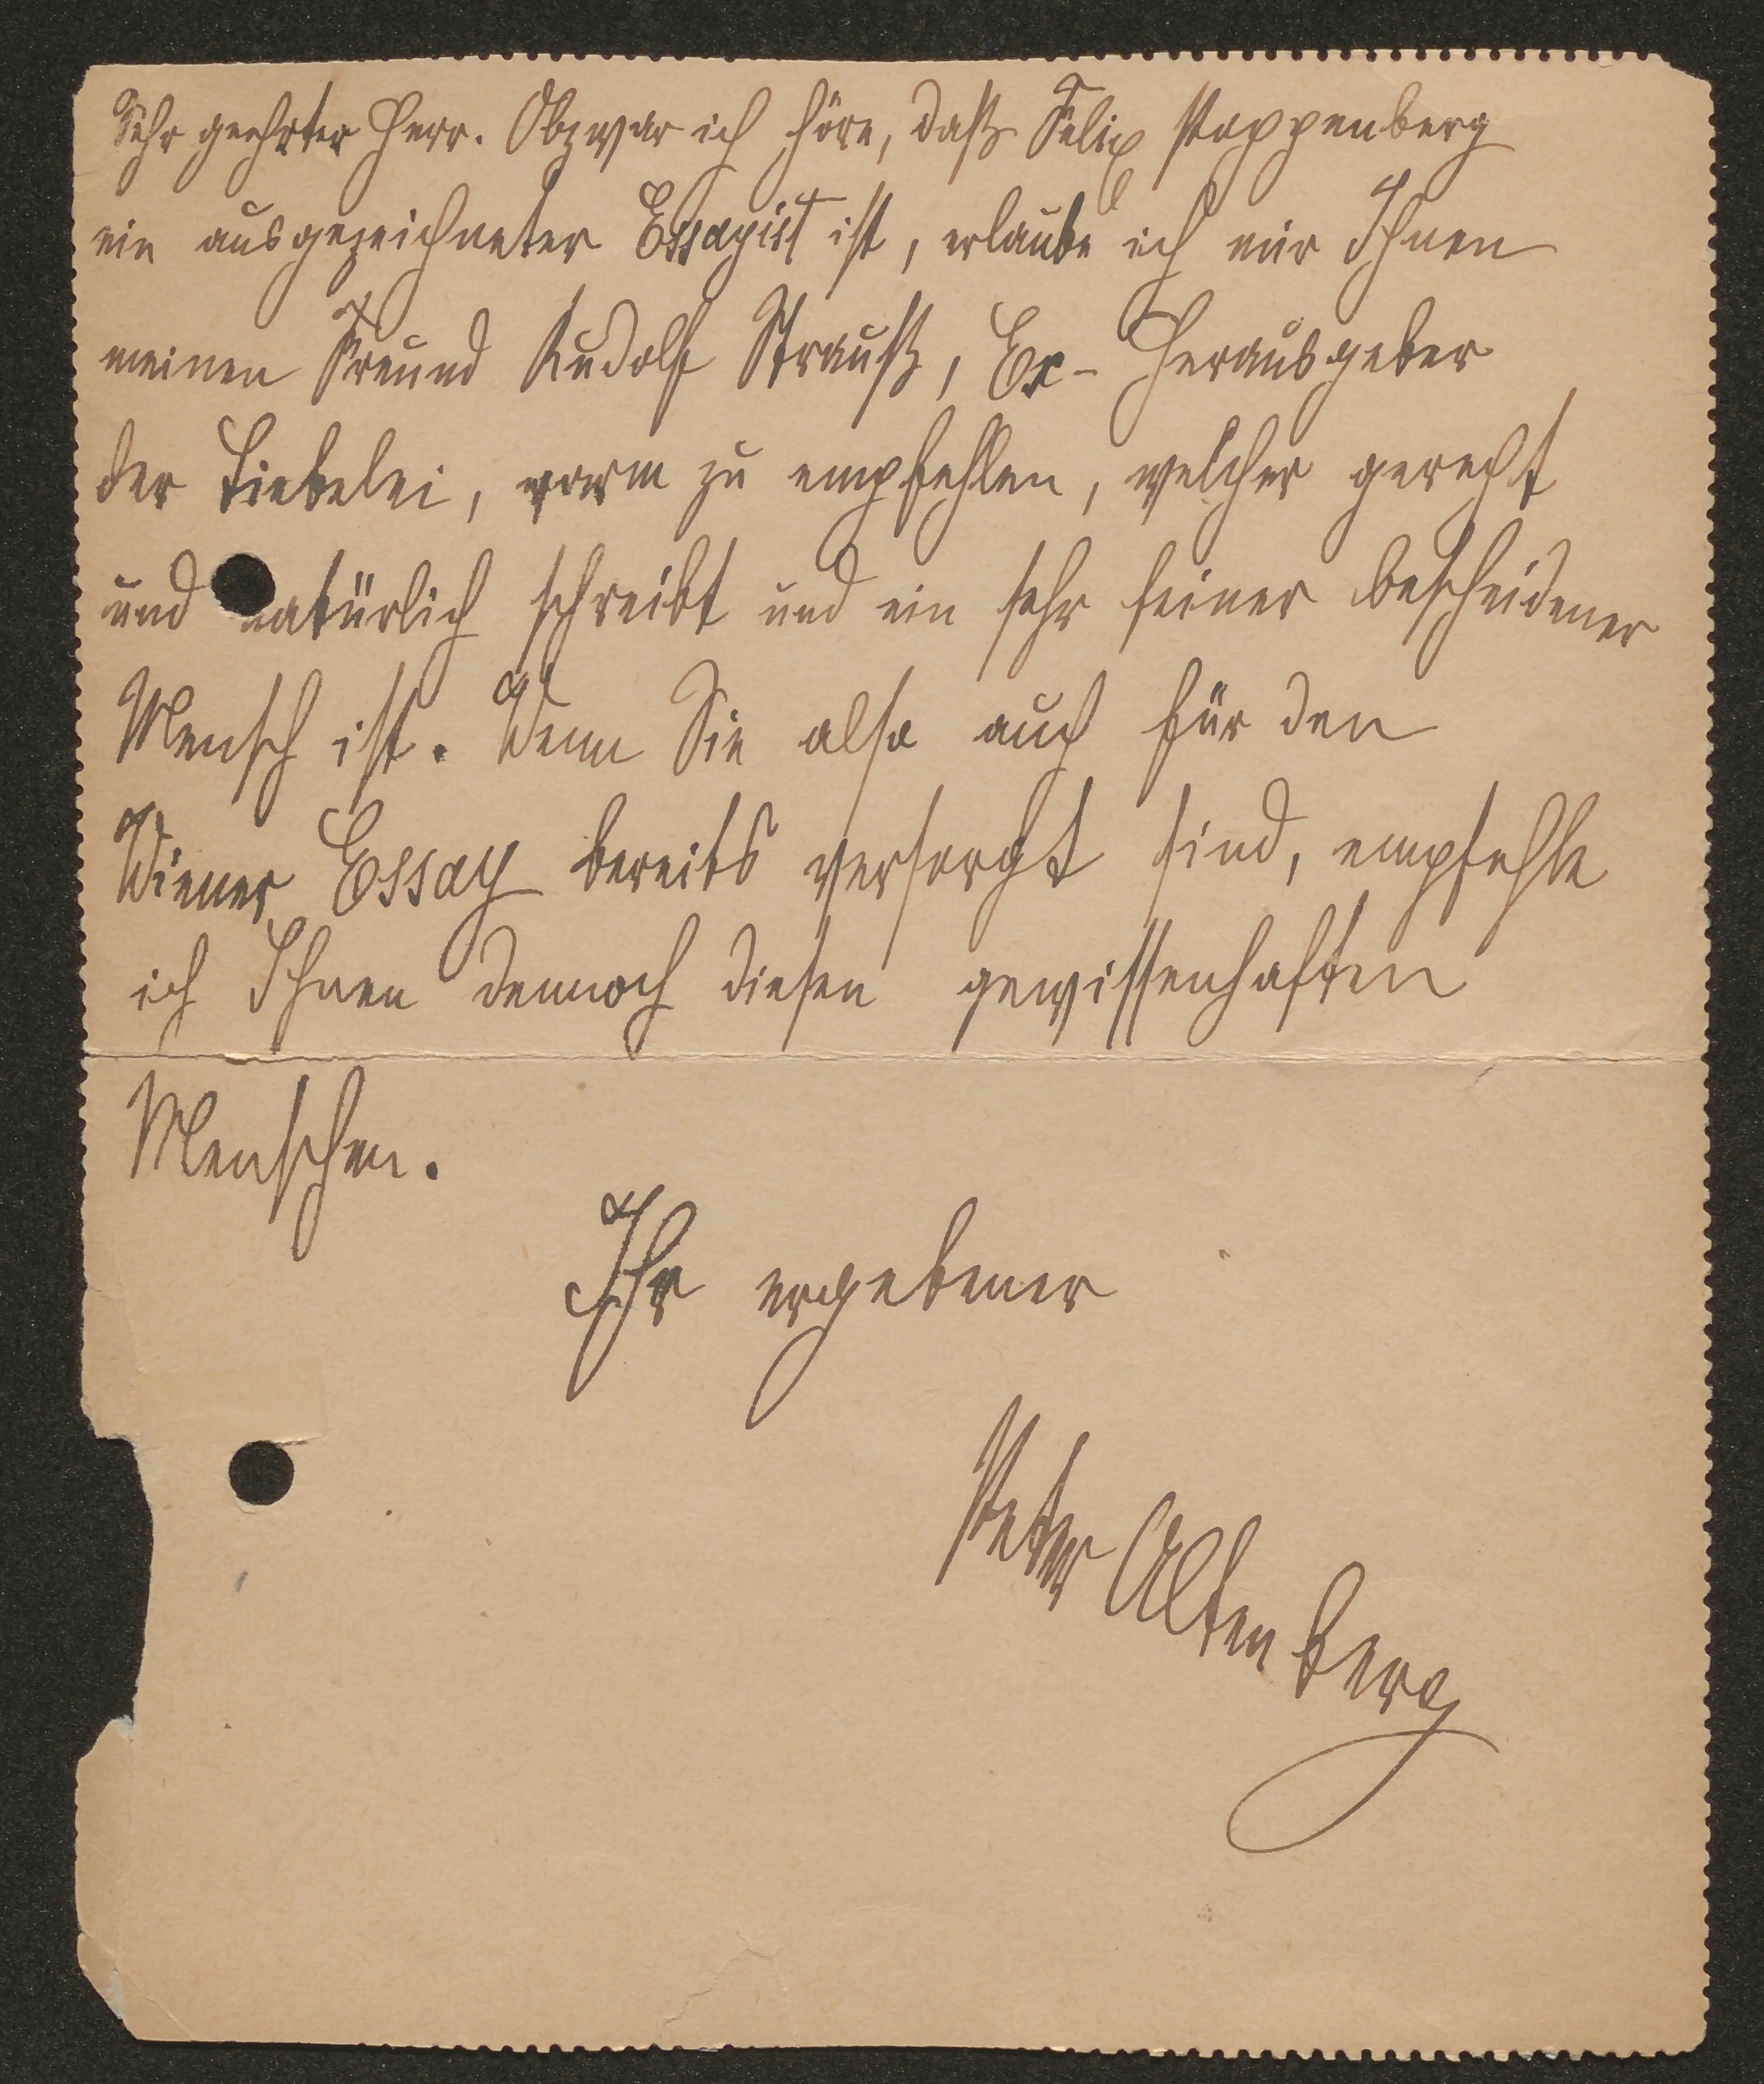 Sehr geehrter Herr. Obzwar ich höre, daß Felix Poppenberg
ein ausgezeichneter Essayist ist, erlaube ich mir Ihnen
meinen Freund Rudolf Strauß, Ex-Herausgeber
der Liebelei, warm zu empfehlen, welcher gerecht
und natürlich schreibt und ein sehr feiner bescheidener
Mensch ist. Wenn Sie also auch für den
Wiener Essay bereits versorgt sind, empfehle
ich Ihnen dennoch diesen gewissenhaften
Menschen.
Ihr ergebener
Peter Altenberg